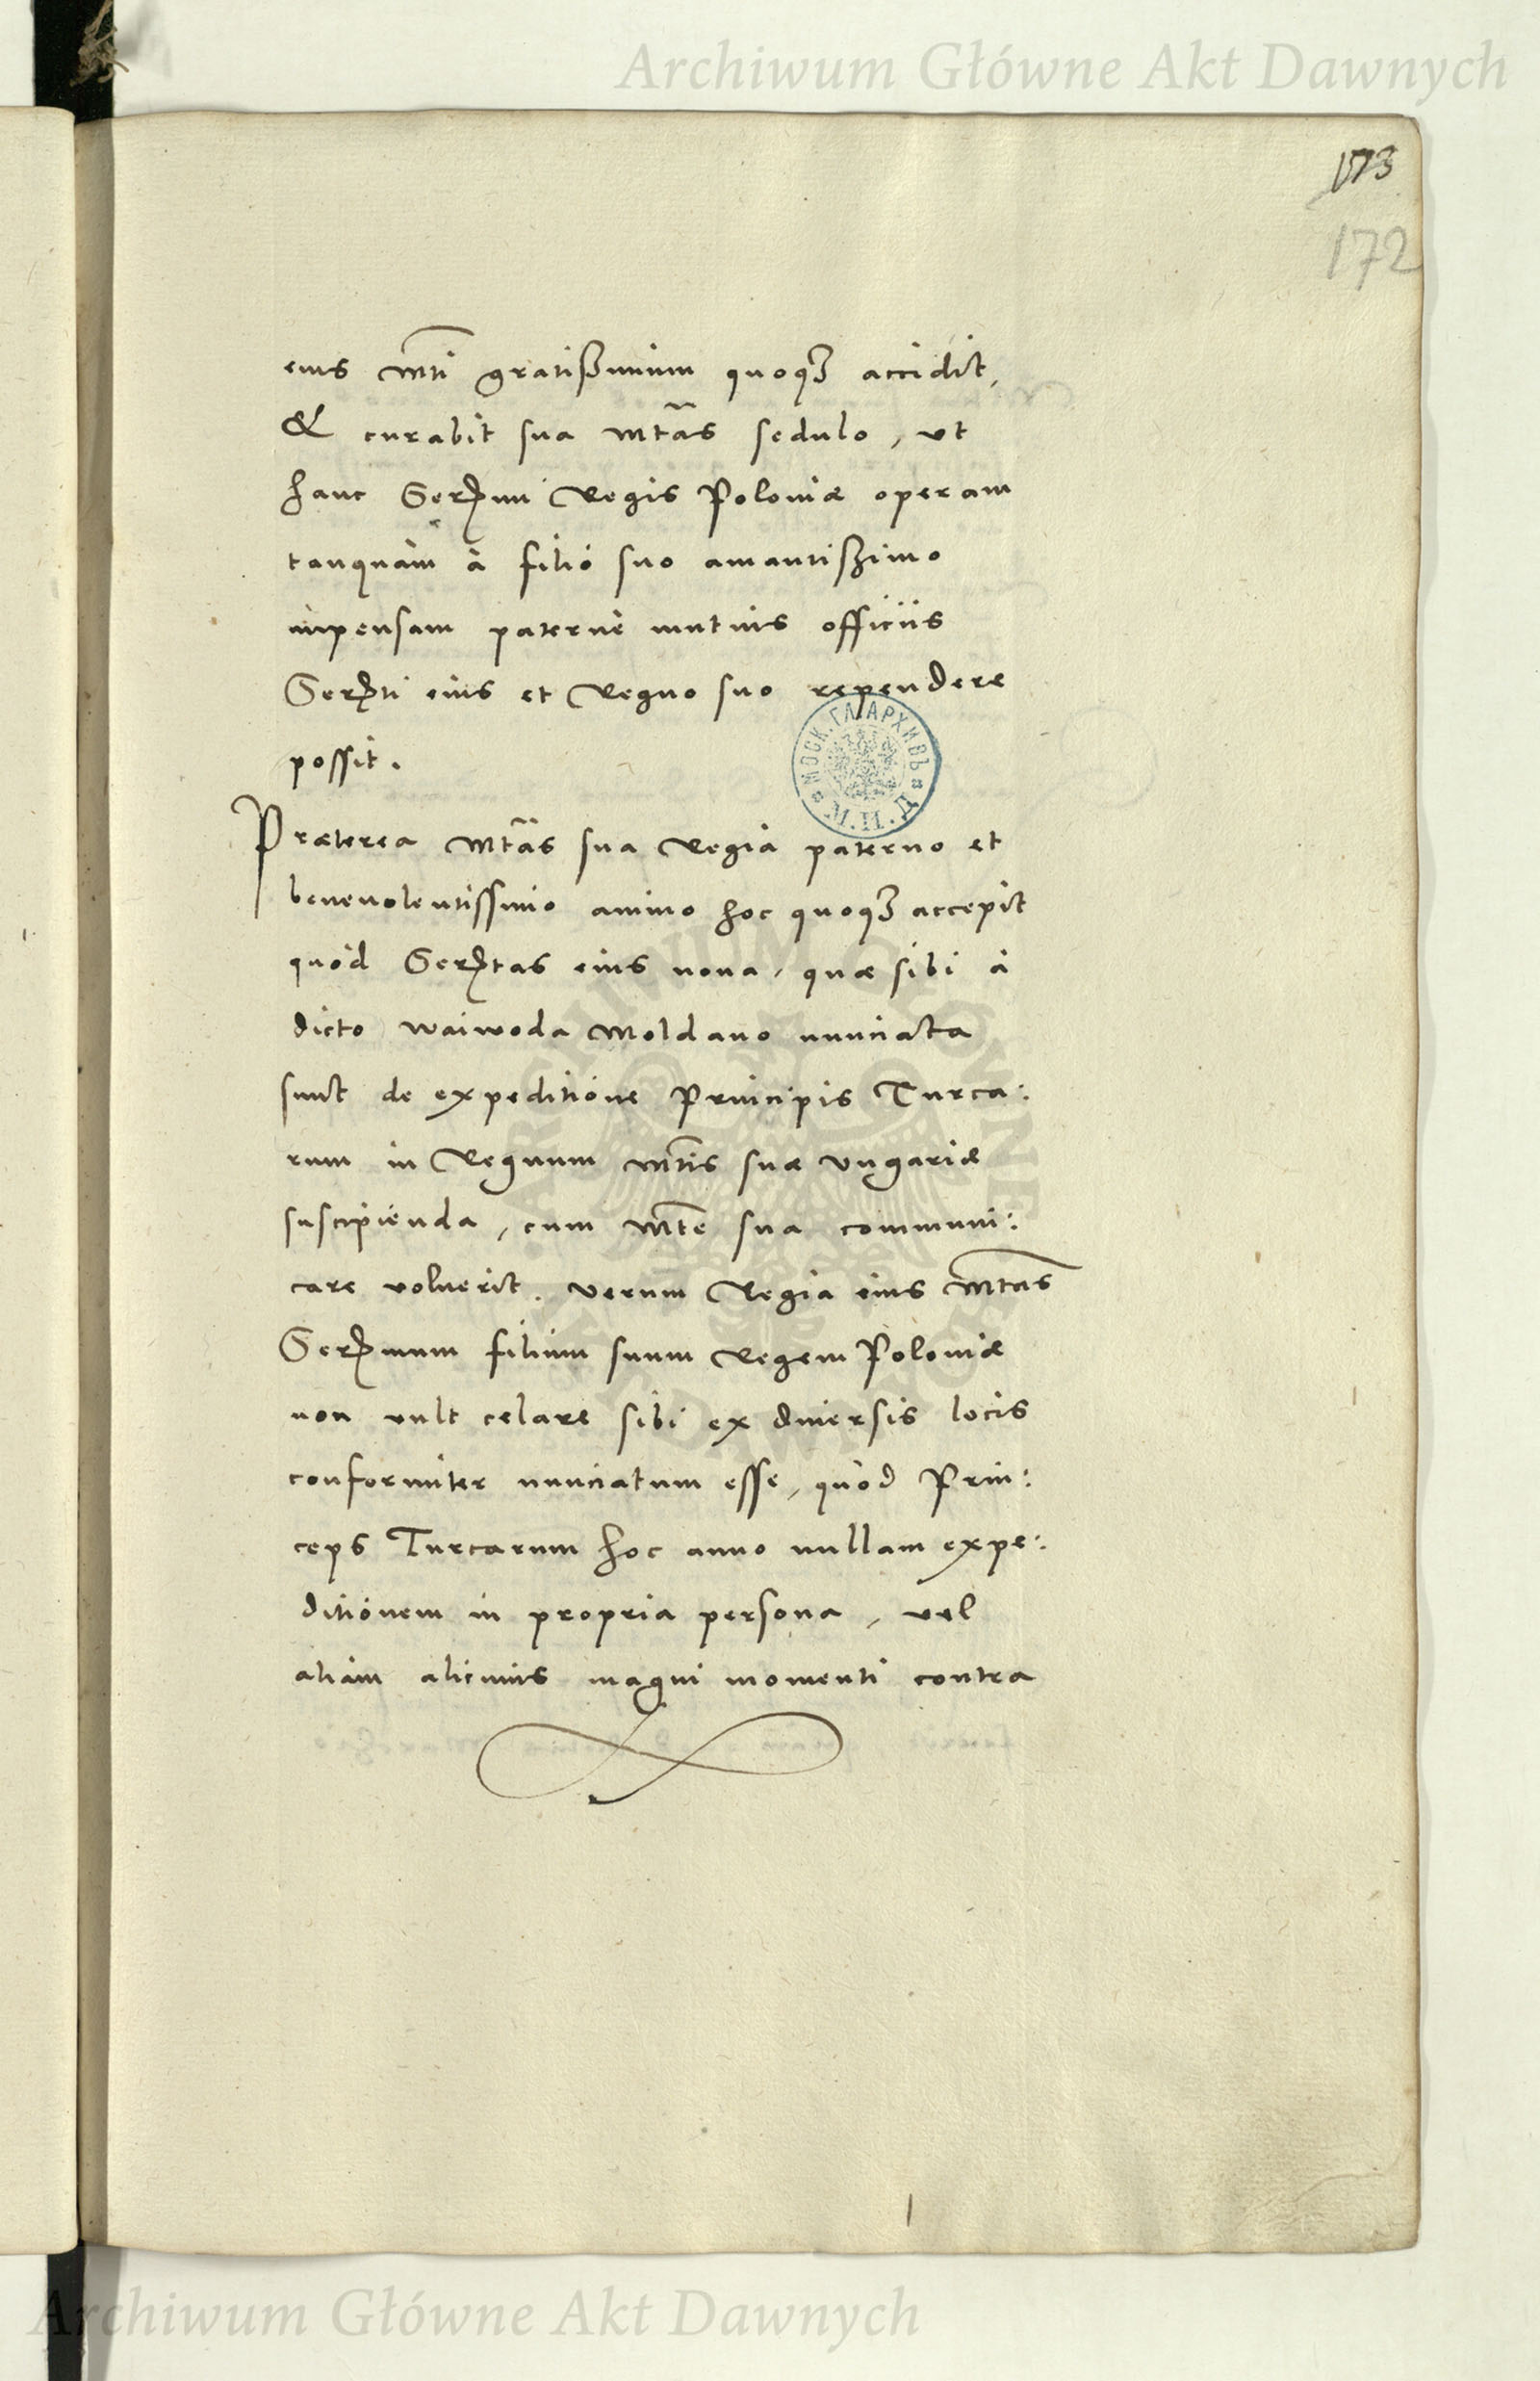 Archiwum Główne Akt Dawnych
173
172
eius Mti gratissimum quoq3 accidit,
& curabit sua Mtas sedulo, vt
hanc Sermi Regis Poloniæ operam
tanquam à filio suo amantissimo
impensam paterne mutuis officiis
Serti eius et Regno suo rependere
possit.
Præterea Mtas sua Regia paterno et
beneuolentissimo animo hoc quoq3 accepit
quòd Sertas eius noua, quæ sibi à
dicto Waiwoda Moldauo nunciata
sunt de expeditione Principis Turca:
rum in Regnum Mtis suæ Vngariæ
suscipienda, cum Mte sua communi:
care voluerit. Verum Regia eius Mtas
Sermum filium suum Regem Poloniæ
non vult celare sibi ex diuersis locis
conformiter nunciatum esse, quòd Prin:
ceps Turcarum hoc anno nullam expe:
ditionem in propria persona, vel
aliam alicuius magni momenti contra
МОСК. ГЛ. АРХИВЪ
Archiwum Główne Akt Dawnych